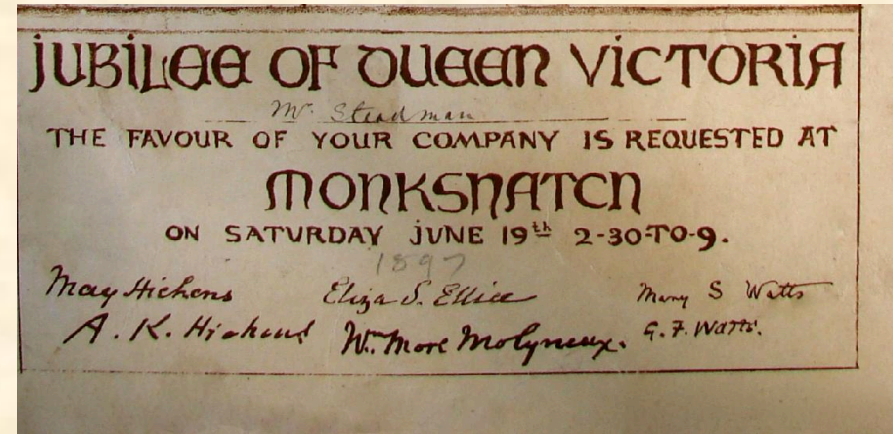 JUBILEE OF QUEEN VICTORIA
Mr. Steadman
THE FAVOUR OF YOUR COMPANY IS REQUESTED AT
MONKSHATCH
ON SATURDAY JUNE 19th 2-30-TO-9.
1897
May Hichens Eliza S. Ellice Mary S Watts
A. K. Hichens Wm. More Molyneux. G. F. Watts.